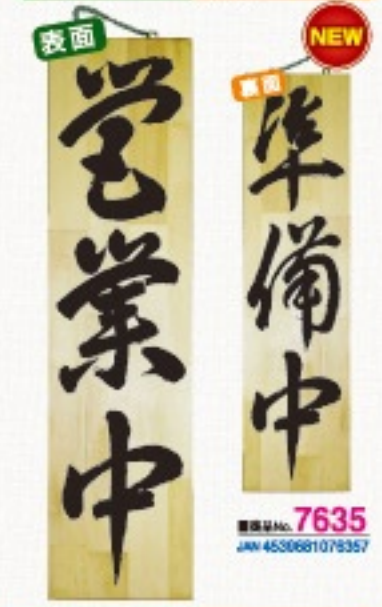 表面
営業中
NEW
裏面
準備中
商品No. 7635
JAN 4530681076357